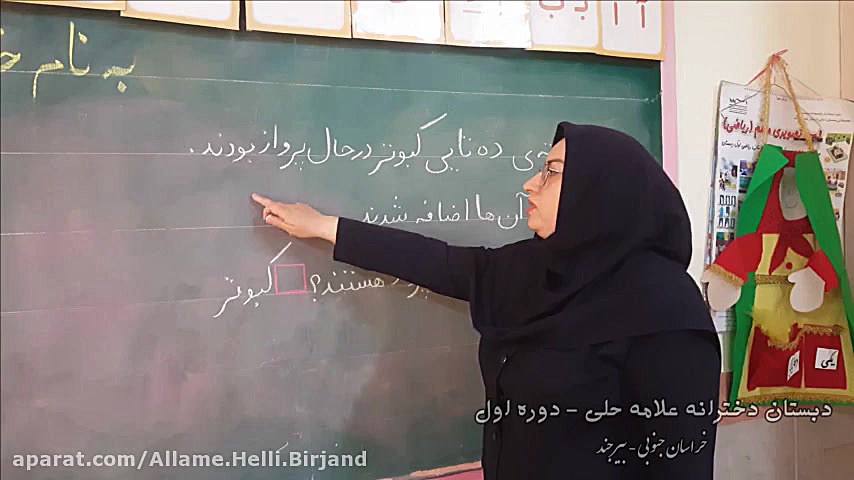 به نام
ده تایی کبوتر در حال پرواز بودند.
آن ها اضافه شدند
هستند؟ کبوتر
(ریاضی)
یکی
دبستان دخترانه علامه حلی - دوره اول
خراسان جنوبی - بیرجند
aparat.com/Allame.Helli.Birjand